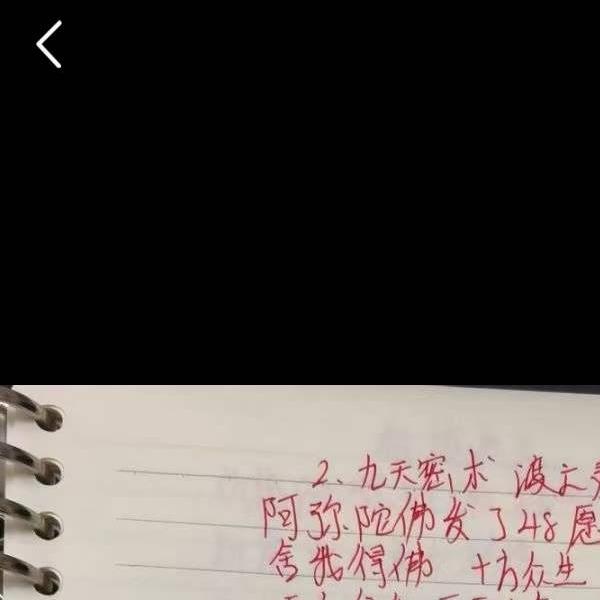 2、九天密术 渡亡
阿弥陀佛发了48愿
舍我得佛 十方众生